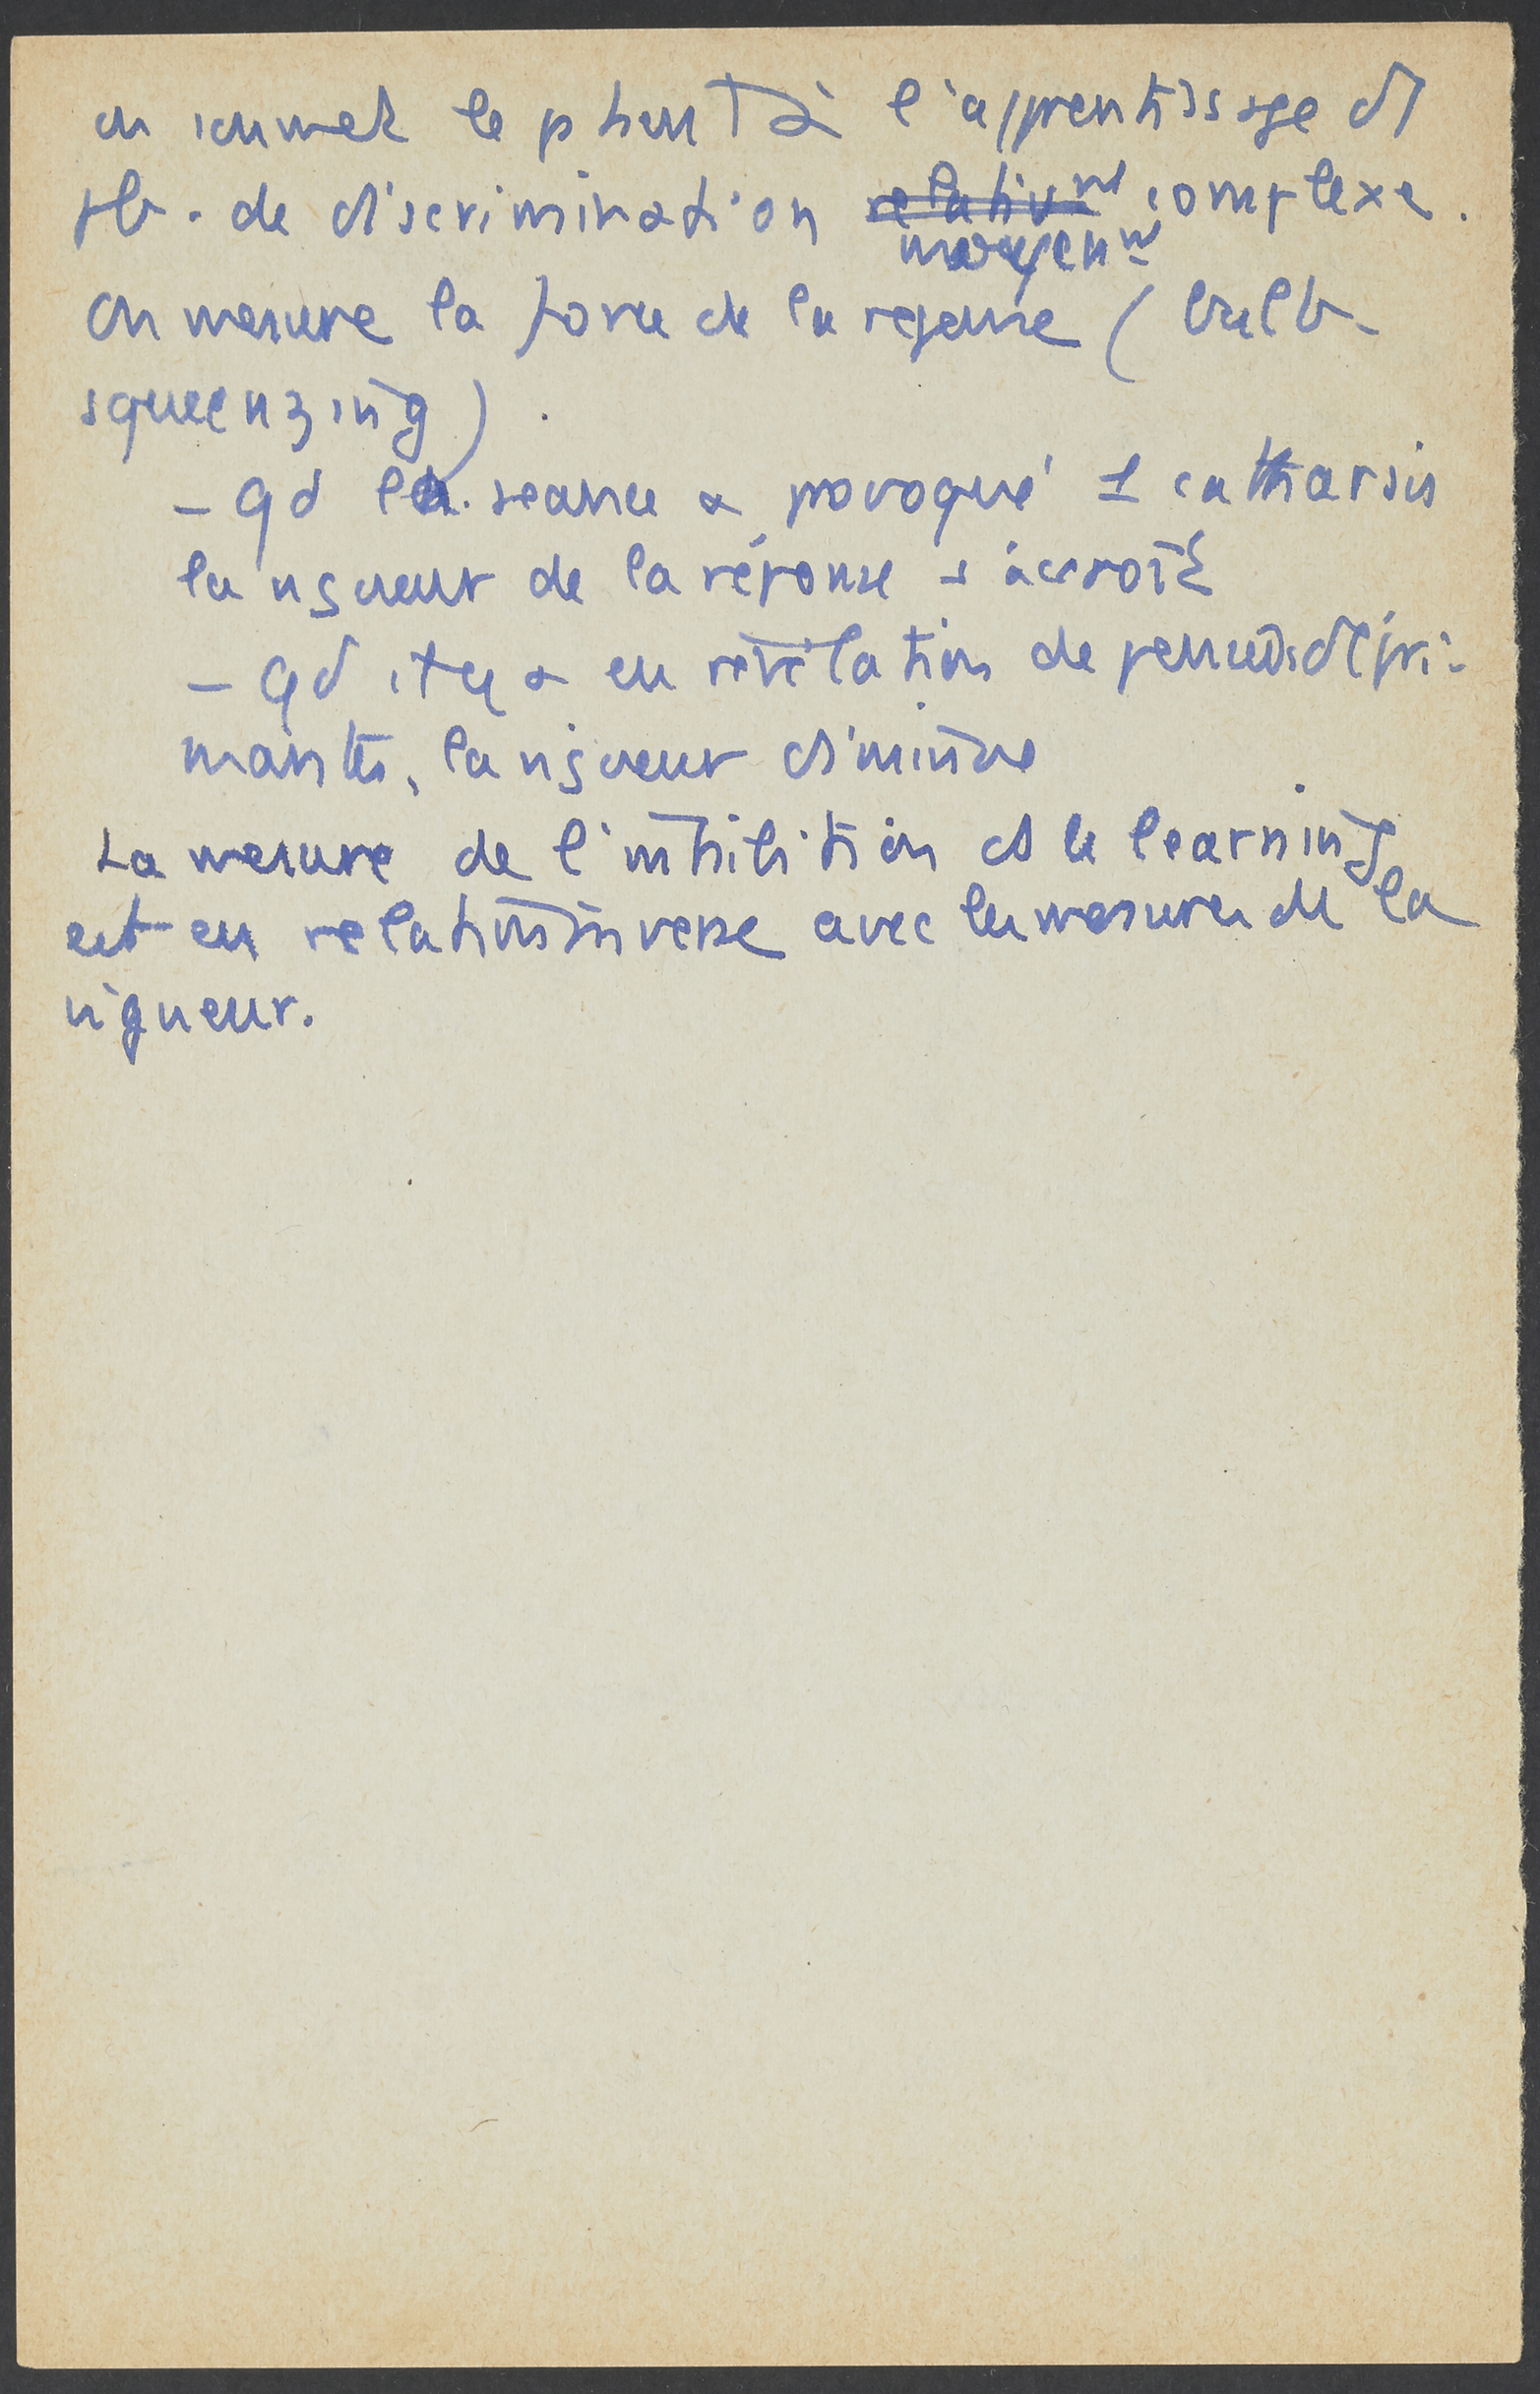 on soumet le patient à l'apprentissage d'1
pb. de discrimination relativnt complexe.
moyennt
On mesure la force de la réponse (bulb-
squeenzing).
- Qd la séance a provoqué 1 catharsis
la vigueur de la réponse s'accroît
- Qd il y a eu révélation de pensées dépri-
mantes, la vigueur diminue
La mesure de l'inhibition ds le learning
est en relation inverse avec les mesures de la
vigueur.